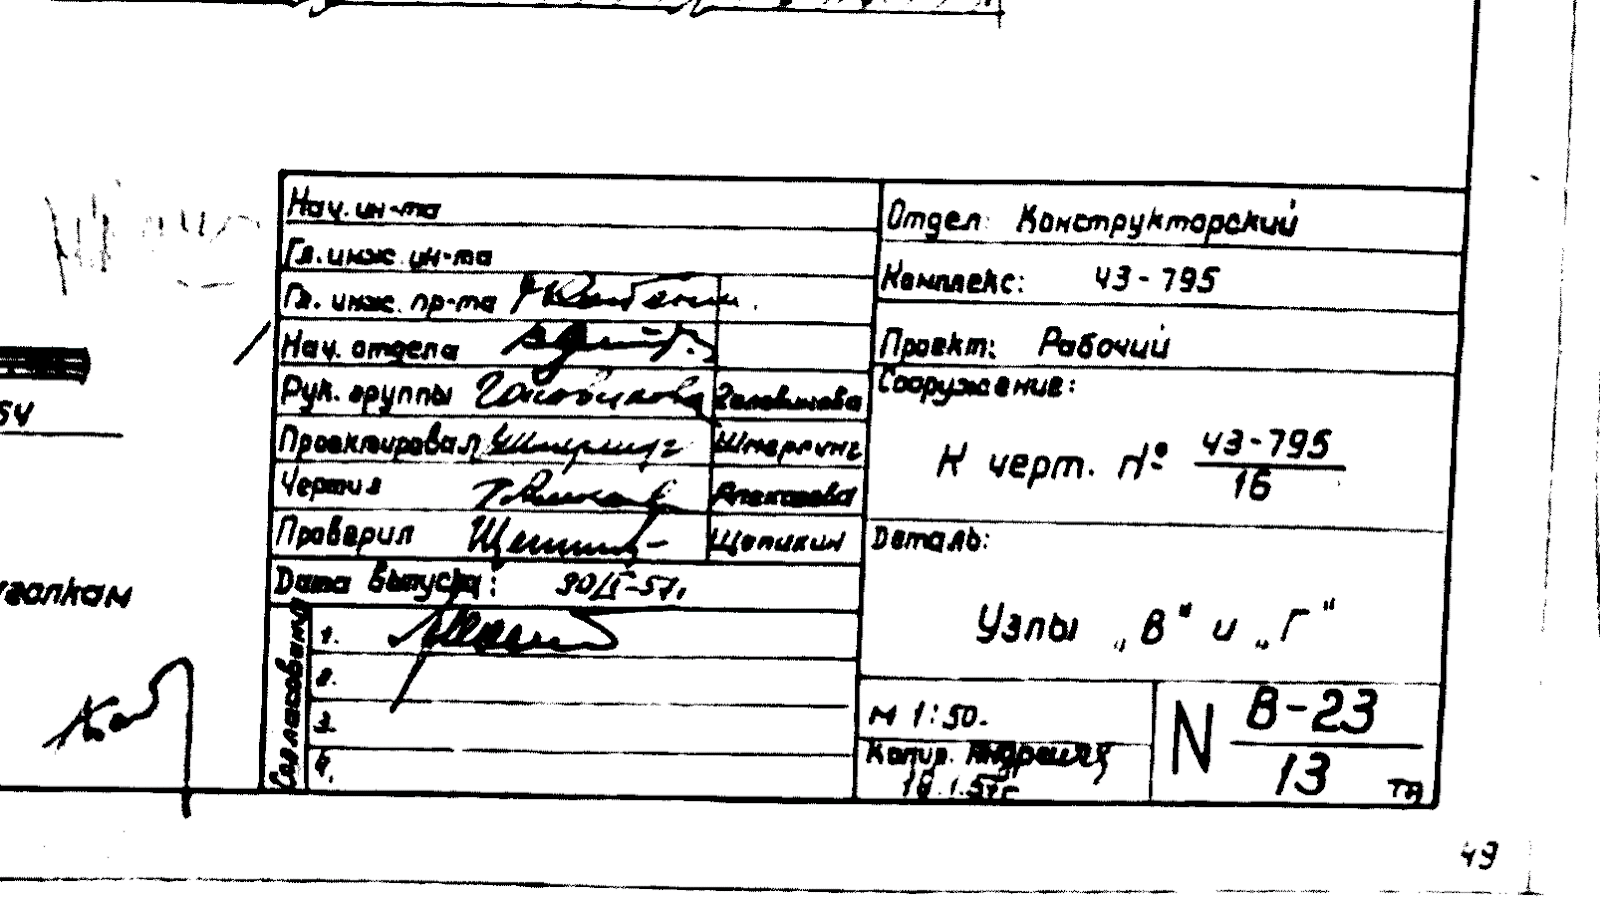 Нач. ин-та
Гл. инж. ин-та
Гл. инж. пр-та
Нач. отдела
Рук. группы Головинова
Проектировал Шперлинг
Чертил
Проверил Щепикин
Дата выпуска: 30/I-57г.
Согласовано
1.
2.
3.
4.
Отдел: Конструкторский
Комплекс: ЧЗ-795
Проект: Рабочий
Сооружение:
К черт. № ЧЗ-795
16
Деталь:
Узлы „В" и „Г"
М 1:50.
Копир.
18.1.57г
N В-23
13
54
49